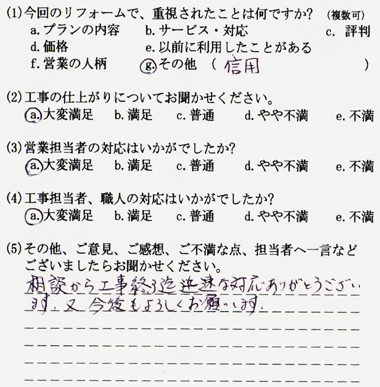 (1)今回のリフォームで、重視されたことは何ですか? (複数可)
a.プランの内容 b.サービス・対応 c. 評判
d.価格 e.以前に利用したことがある
f.営業の人柄 g.その他 ( 信用 )
(2)工事の仕上がりについてお聞かせください。
a.大変満足 b.満足 c.普通 d.やや不満 e.不満
(3)営業担当者の対応はいかがでしたか?
a.大変満足 b.満足 c.普通 d.やや不満 e.不満
(4)工事担当者、職人の対応はいかがでしたか?
a.大変満足 b.満足 c.普通 d.やや不満 e.不満
(5)その他、ご意見、ご感想、ご不満な点、担当者へ一言など
ございましたらお聞かせください。
相談から工事終了迄迅速な対応ありがとうござい
ます。又今後もよろしくお願いします。